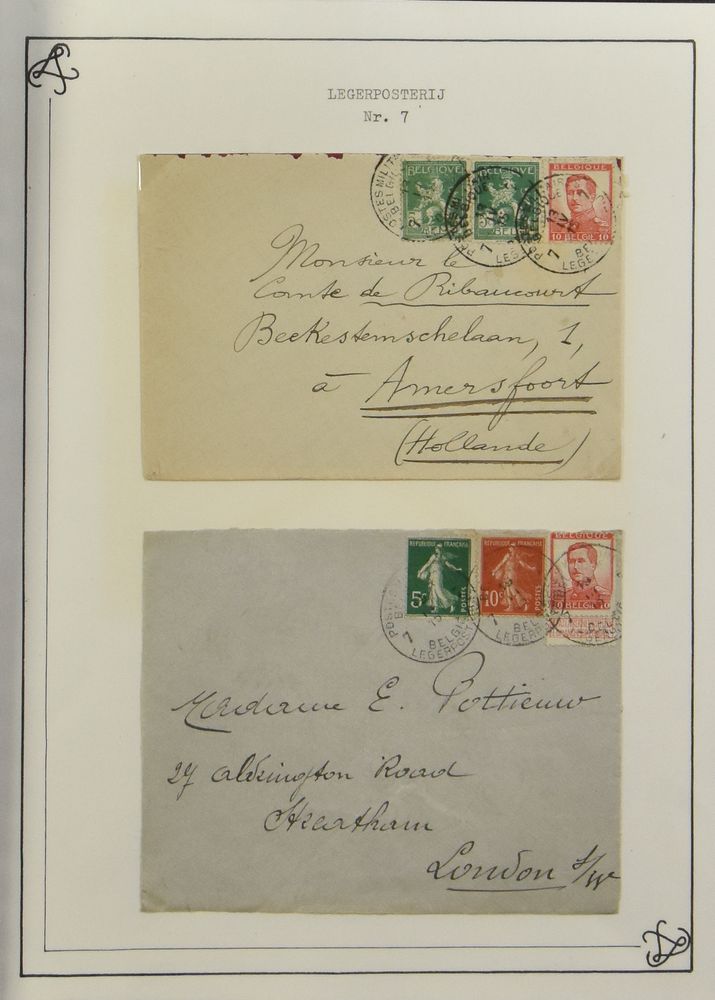 LEGERPOSTERIJ
Nr. 7
POSTES MILITA
BELGI
BELGIQUE
BELGIQUE
BELGIQUE
10 BELGIE 10
7
LEG
7
BE
LEGE
Monsieur le
Comte de Ribaucourt
Beekestemschelaan, 1,
à Amersfoort
(Hollande)
REPUBLIQUE FRANÇAISE
5c
POSTES
REPUBLIQUE FRANÇAISE
10c
POSTES
BELGIQUE
10 BELGIE 10
7
BELGI
LEGERPOST
7
BEL
LEGERP
Madame E. Pottieuw
27 Abington Road
Heartham
London S/W